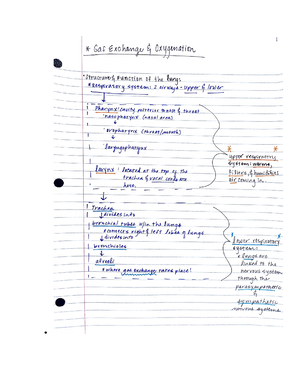 1
* Gas Exchange & Oxygenation
*Structure & Function of the lungs
*Respiratory system: 2 airways - upper & lower
Pharynx: cavity posterior mouth & throat
*nasopharynx (nasal area)
oropharynx (throat/mouth)
laryngopharynx
larynx: located at the top of the
trachea & vocal cords are
here.
upper respiratory
system: warms,
filters, & humidifies
air coming in.
Trachea
divides into
bronchial tubes in the lungs
*connects right & left lobes of lungs
divides into
bronchioles
alveoli
*where gas exchange takes place!
lower respiratory
system:
*lungs are
linked to the
nervous system
through the
parasympathetic
&
sympathetic
nervous systems